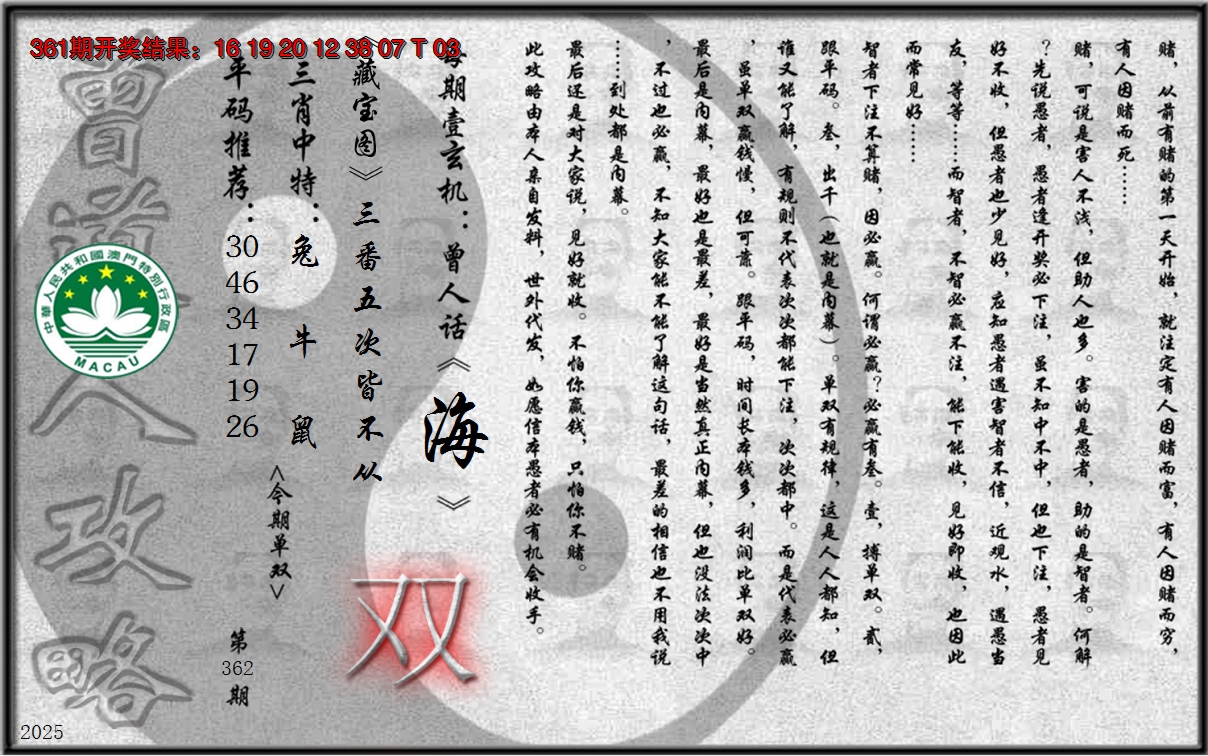 361期开奖结果：16 19 20 12 38 07 T 03
赌，从前有赌的第一天开始，就注定有人因赌而富，有人因赌而穷，
有人因赌而死……
赌，可说是害人不浅，但助人也多。害的是愚者，助的是智者。何解
？先说愚者，愚者逢开奖必下注，虽不知中不中，但也下注，愚者见
好不收，但愚者也少见好，应知愚者遇害智者不信，近观水，遇愚当
友，等等……而智者，不智必赢不注，能下能收，见好即收，也因此
而常见好……
智者下注不算赌，因必赢。何谓必赢？必赢有叁。壹，搏单双。贰，
跟平码。叁，出千（也就是内幕）。单双有规律，这是人人都知，但
谁又能了解，有规则不代表次次都能下注，次次都中。而是代表必赢
，虽单双赢钱慢，但可靠。跟平码，时间长本钱多，利润比单双好。
最后是内幕，最好也是最差，最好是当然真正内幕，但也没法次次中
，不过也必赢，不知大家能不能了解这句话，最差的相信也不用我说
……到处都是内幕。
最后还是对大家说，见好就收。不怕你赢钱，只怕你不赌。
此攻略由本人亲自发料，世外代发，如愿信本愚者必有机会收手。
每期壹玄机：曾人话《海》
《藏宝图》三番五次皆不从
双
三肖中特：兔 牛 鼠
<今期单双>
平码推荐：30 46 34 17 19 26
第362期
曾道人攻略
中華人民共和國澳門特別行政區
MACAU
2025